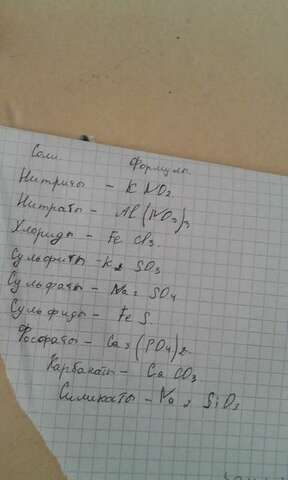 Соли Формулы
Нитриты - KNO2
Нитраты - Al(NO3)3
Хлориды - FeCl3.
Сульфиты - K2SO3
Сульфаты - Na2SO4
Сульфиды - FeS
Фосфаты - Ca3(PO4)2
Карбонаты - CaCO3
Силикаты - Na2SiO3